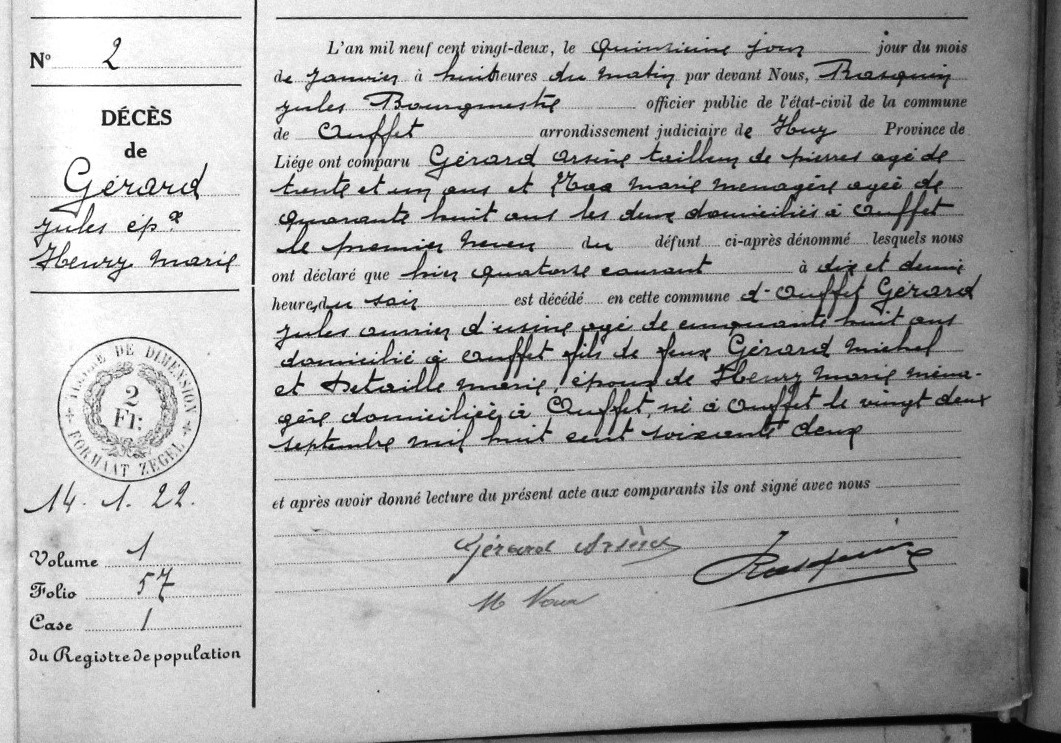 N° 2
DÉCÈS
de
Gérard
Jules ép.x
Henry Marie
TAELLE DE DIMENSION
2
FR:
FORMAAT ZEGEL
14. 1. 22.
Volume 1
Folio 57
Case 1
du Registre de population
L'an mil neuf cent vingt-deux, le quinzieme jour jour du mois
de Janvier à huit heures du matin par devant Nous, Rasquin
Jules Bourgmestre officier public de l'état-civil de la commune
de Ouffet arrondissement judiciaire de Huy Province de
Liége ont comparu Gérard Arsène tailleur de pierres agé de
trente et un ans et Marie menagère agée de
quarante huit ans les deux domiciliés à Ouffet
le premier neveu du défunt ci-après dénommé lesquels nous
ont déclaré que hier quatorze courant à dix et demie
heure du soir est décédé en cette commune d'Ouffet Gérard
Jules ouvrier d'usine agé de cinquante huit ans
domicilié à Ouffet fils de feux Gérard Michel
et Detaille Marie, époux de Henry Marie ména-
gère domiciliée à Ouffet, né à Ouffet le vingt deux
septembre mil huit cent soixante deux
et après avoir donné lecture du présent acte aux comparants ils ont signé avec nous
Gérard Arsène
M
Rasquin